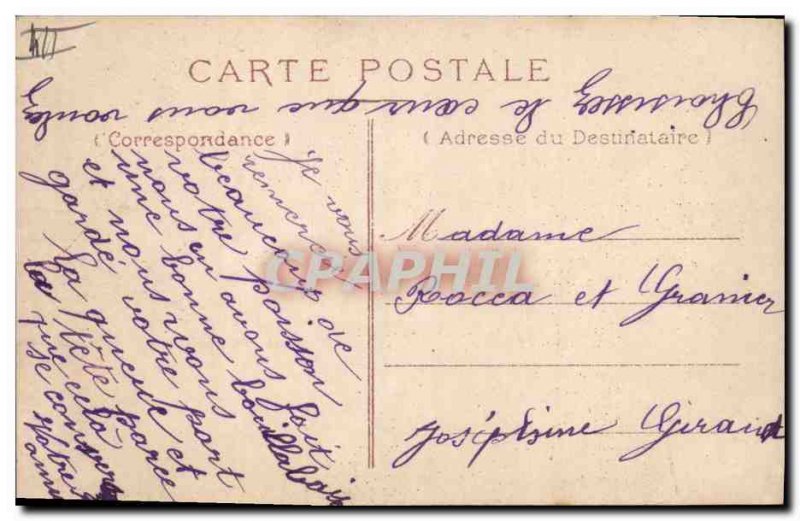 CARTE POSTALE
Choisissez le cœur que vous voulez
(Correspondance)
(Adresse du Destinataire)
Je vous
remercie
beaucoup de
votre poisson
nous en avons fait
une bonne bouillabaisse
et nous vous
gardé votre part
La queue et
la tête parce
que cela
se conserve
Votre
amie
Madame
Rocca et Granier
Joséphine Giraud
CPAPHIL